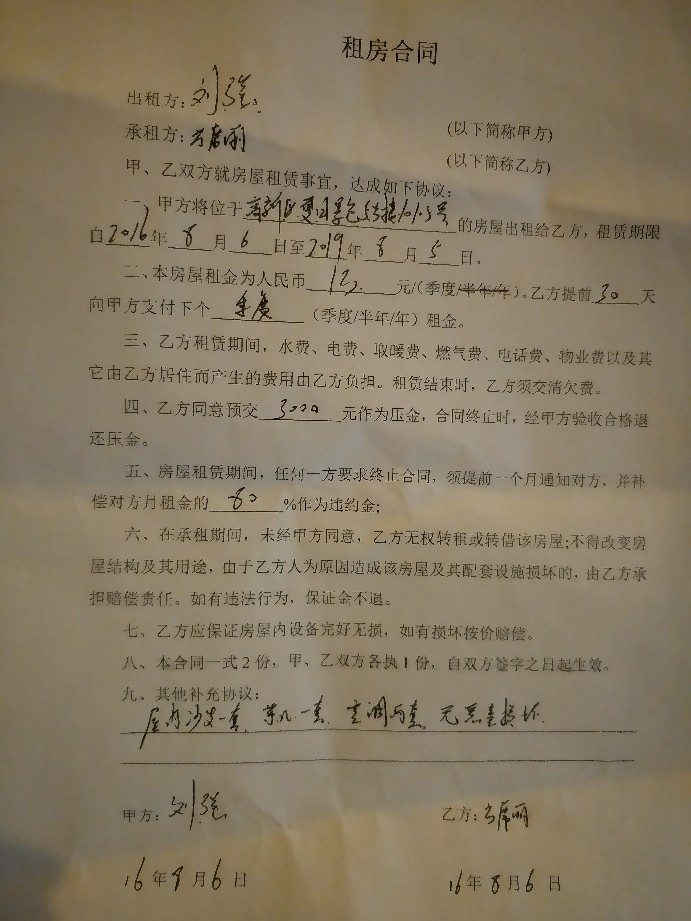 租房合同
出租方：刘强
承租方：丽
(以下简称甲方)
(以下简称乙方)
甲、乙双方就房屋租赁事宜，达成如下协议：
一、甲方将位于高新区 号的房屋出租给乙方，租赁期限
自2016年8月6日至2019年8月5日。
二、本房屋租金为人民币 元/(季度/半年/年)。乙方提前30天
向甲方支付下个季度（季度/半年/年）租金。
三、乙方租赁期间，水费、电费、取暖费、燃气费、电话费、物业费以及其
它由乙方居住而产生的费用由乙方负担。租赁结束时，乙方须交清欠费。
四、乙方同意预交3000元作为压金，合同终止时，经甲方验收合格退
还压金。
五、房屋租赁期间，任何一方要求终止合同，须提前一个月通知对方，并补
偿对方月租金的80%作为违约金;
六、在承租期间，未经甲方同意，乙方无权转租或转借该房屋;不得改变房
屋结构及其用途，由于乙方人为原因造成该房屋及其配套设施损坏的，由乙方承
担赔偿责任。如有违法行为，保证金不退。
七、乙方应保证房屋内设备完好无损，如有损坏按价赔偿。
八、本合同一式2份，甲、乙双方各执1份，自双方签字之日起生效。
九、其他补充协议：
屋内沙发一套、茶几一套、空调两套、无恶意损坏.
甲方：刘强
乙方：丽
16年8月6日
16年8月6日